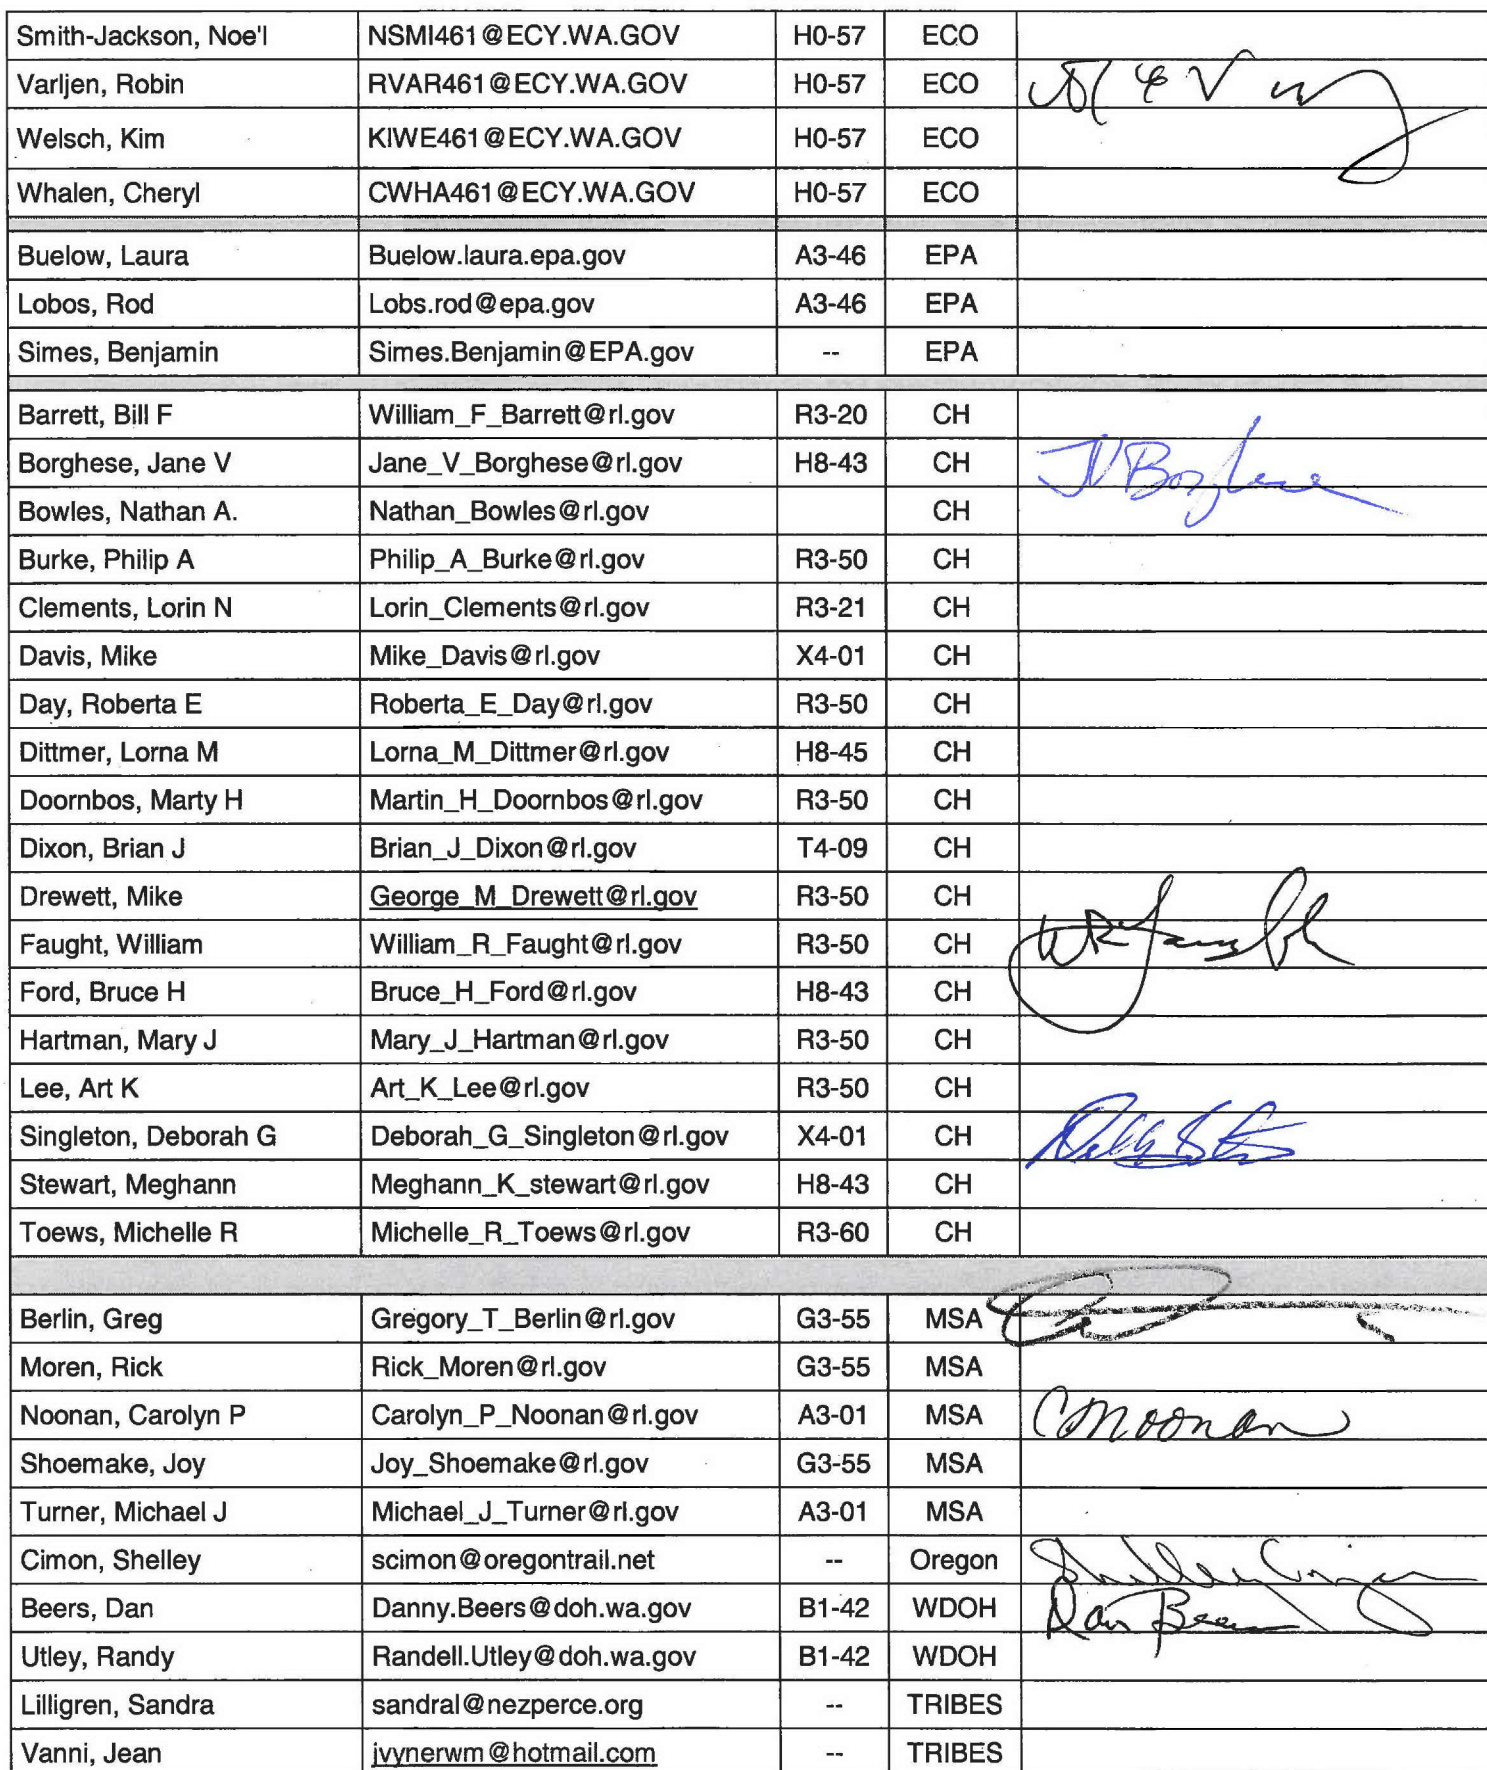 Smith-Jackson, Noe'l NSMI461@ECY.WA.GOV H0-57 ECO
Varljen, Robin RVAR461@ECY.WA.GOV H0-57 ECO
Welsch, Kim KIWE461@ECY.WA.GOV H0-57 ECO
Whalen, Cheryl CWHA461@ECY.WA.GOV H0-57 ECO
Buelow, Laura Buelow.laura.epa.gov A3-46 EPA
Lobos, Rod Lobs.rod@epa.gov A3-46 EPA
Simes, Benjamin Simes.Benjamin@EPA.gov -- EPA
Barrett, Bill F William_F_Barrett@rl.gov R3-20 CH
Borghese, Jane V Jane_V_Borghese@rl.gov H8-43 CH JV Borghese
Bowles, Nathan A. Nathan_Bowles@rl.gov CH
Burke, Philip A Philip_A_Burke@rl.gov R3-50 CH
Clements, Lorin N Lorin_Clements@rl.gov R3-21 CH
Davis, Mike Mike_Davis@rl.gov X4-01 CH
Day, Roberta E Roberta_E_Day@rl.gov R3-50 CH
Dittmer, Lorna M Lorna_M_Dittmer@rl.gov H8-45 CH
Doornbos, Marty H Martin_H_Doornbos@rl.gov R3-50 CH
Dixon, Brian J Brian_J_Dixon@rl.gov T4-09 CH
Drewett, Mike George_M_Drewett@rl.gov R3-50 CH
Faught, William William_R_Faught@rl.gov R3-50 CH WR Faught
Ford, Bruce H Bruce_H_Ford@rl.gov H8-43 CH
Hartman, Mary J Mary_J_Hartman@rl.gov R3-50 CH
Lee, Art K Art_K_Lee@rl.gov R3-50 CH
Singleton, Deborah G Deborah_G_Singleton@rl.gov X4-01 CH
Stewart, Meghann Meghann_K_stewart@rl.gov H8-43 CH
Toews, Michelle R Michelle_R_Toews@rl.gov R3-60 CH
Berlin, Greg Gregory_T_Berlin@rl.gov G3-55 MSA
Moren, Rick Rick_Moren@rl.gov G3-55 MSA
Noonan, Carolyn P Carolyn_P_Noonan@rl.gov A3-01 MSA CNoonan
Shoemake, Joy Joy_Shoemake@rl.gov G3-55 MSA
Turner, Michael J Michael_J_Turner@rl.gov A3-01 MSA
Cimon, Shelley scimon@oregontrail.net -- Oregon Shelley Cimon
Beers, Dan Danny.Beers@doh.wa.gov B1-42 WDOH Dan Beers
Utley, Randy Randell.Utley@doh.wa.gov B1-42 WDOH
Lilligren, Sandra sandral@nezperce.org -- TRIBES
Vanni, Jean jvynerwm@hotmail.com -- TRIBES